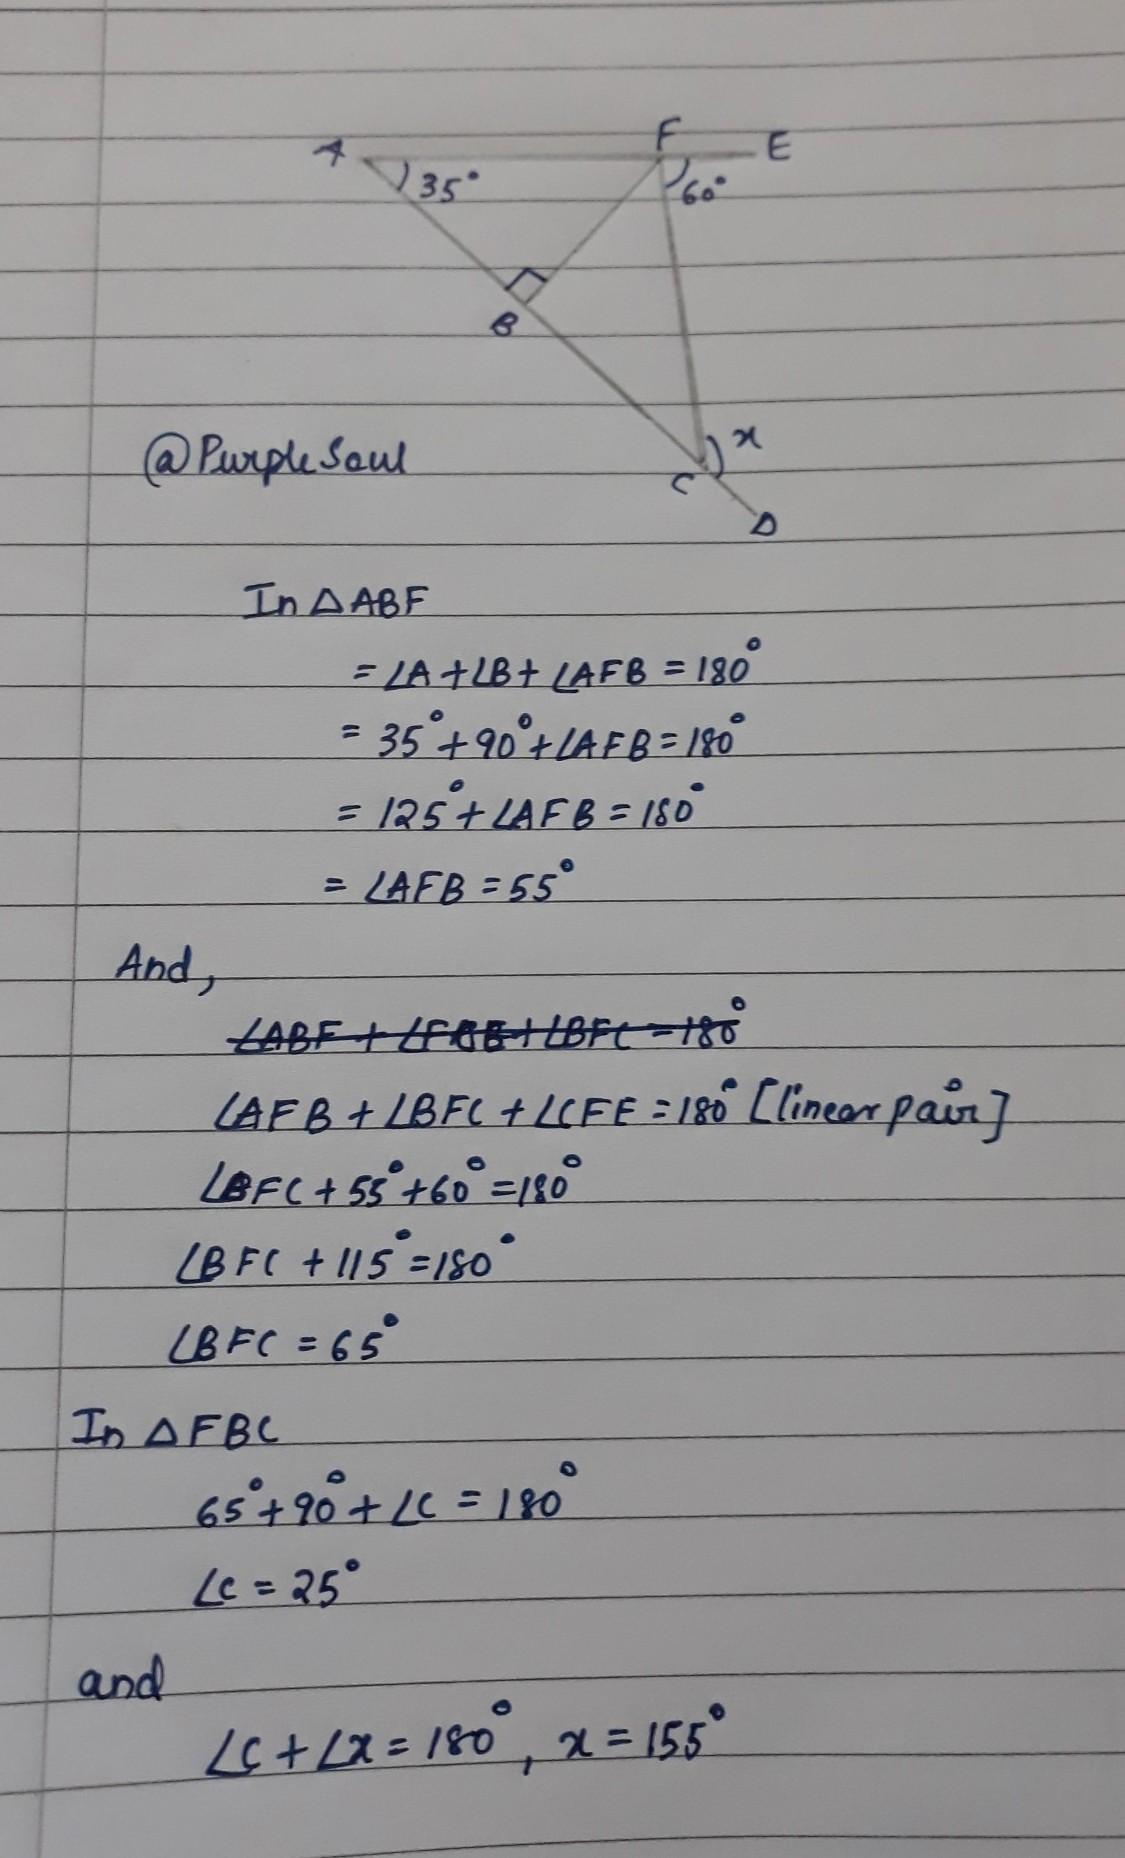 A
F
E
35°
60°
B
x
@PurpleSoul
C
D
In △ABF
= ∠A + ∠B + ∠AFB = 180°
= 35° + 90° + ∠AFB = 180°
= 125° + ∠AFB = 180°
= ∠AFB = 55°
And,
∠AFB + ∠BFC + ∠CFE = 180° [linear pair]
∠BFC + 55° + 60° = 180°
∠BFC + 115° = 180°
∠BFC = 65°
In △FBC
65° + 90° + ∠C = 180°
∠C = 25°
and
∠C + ∠x = 180°, x = 155°